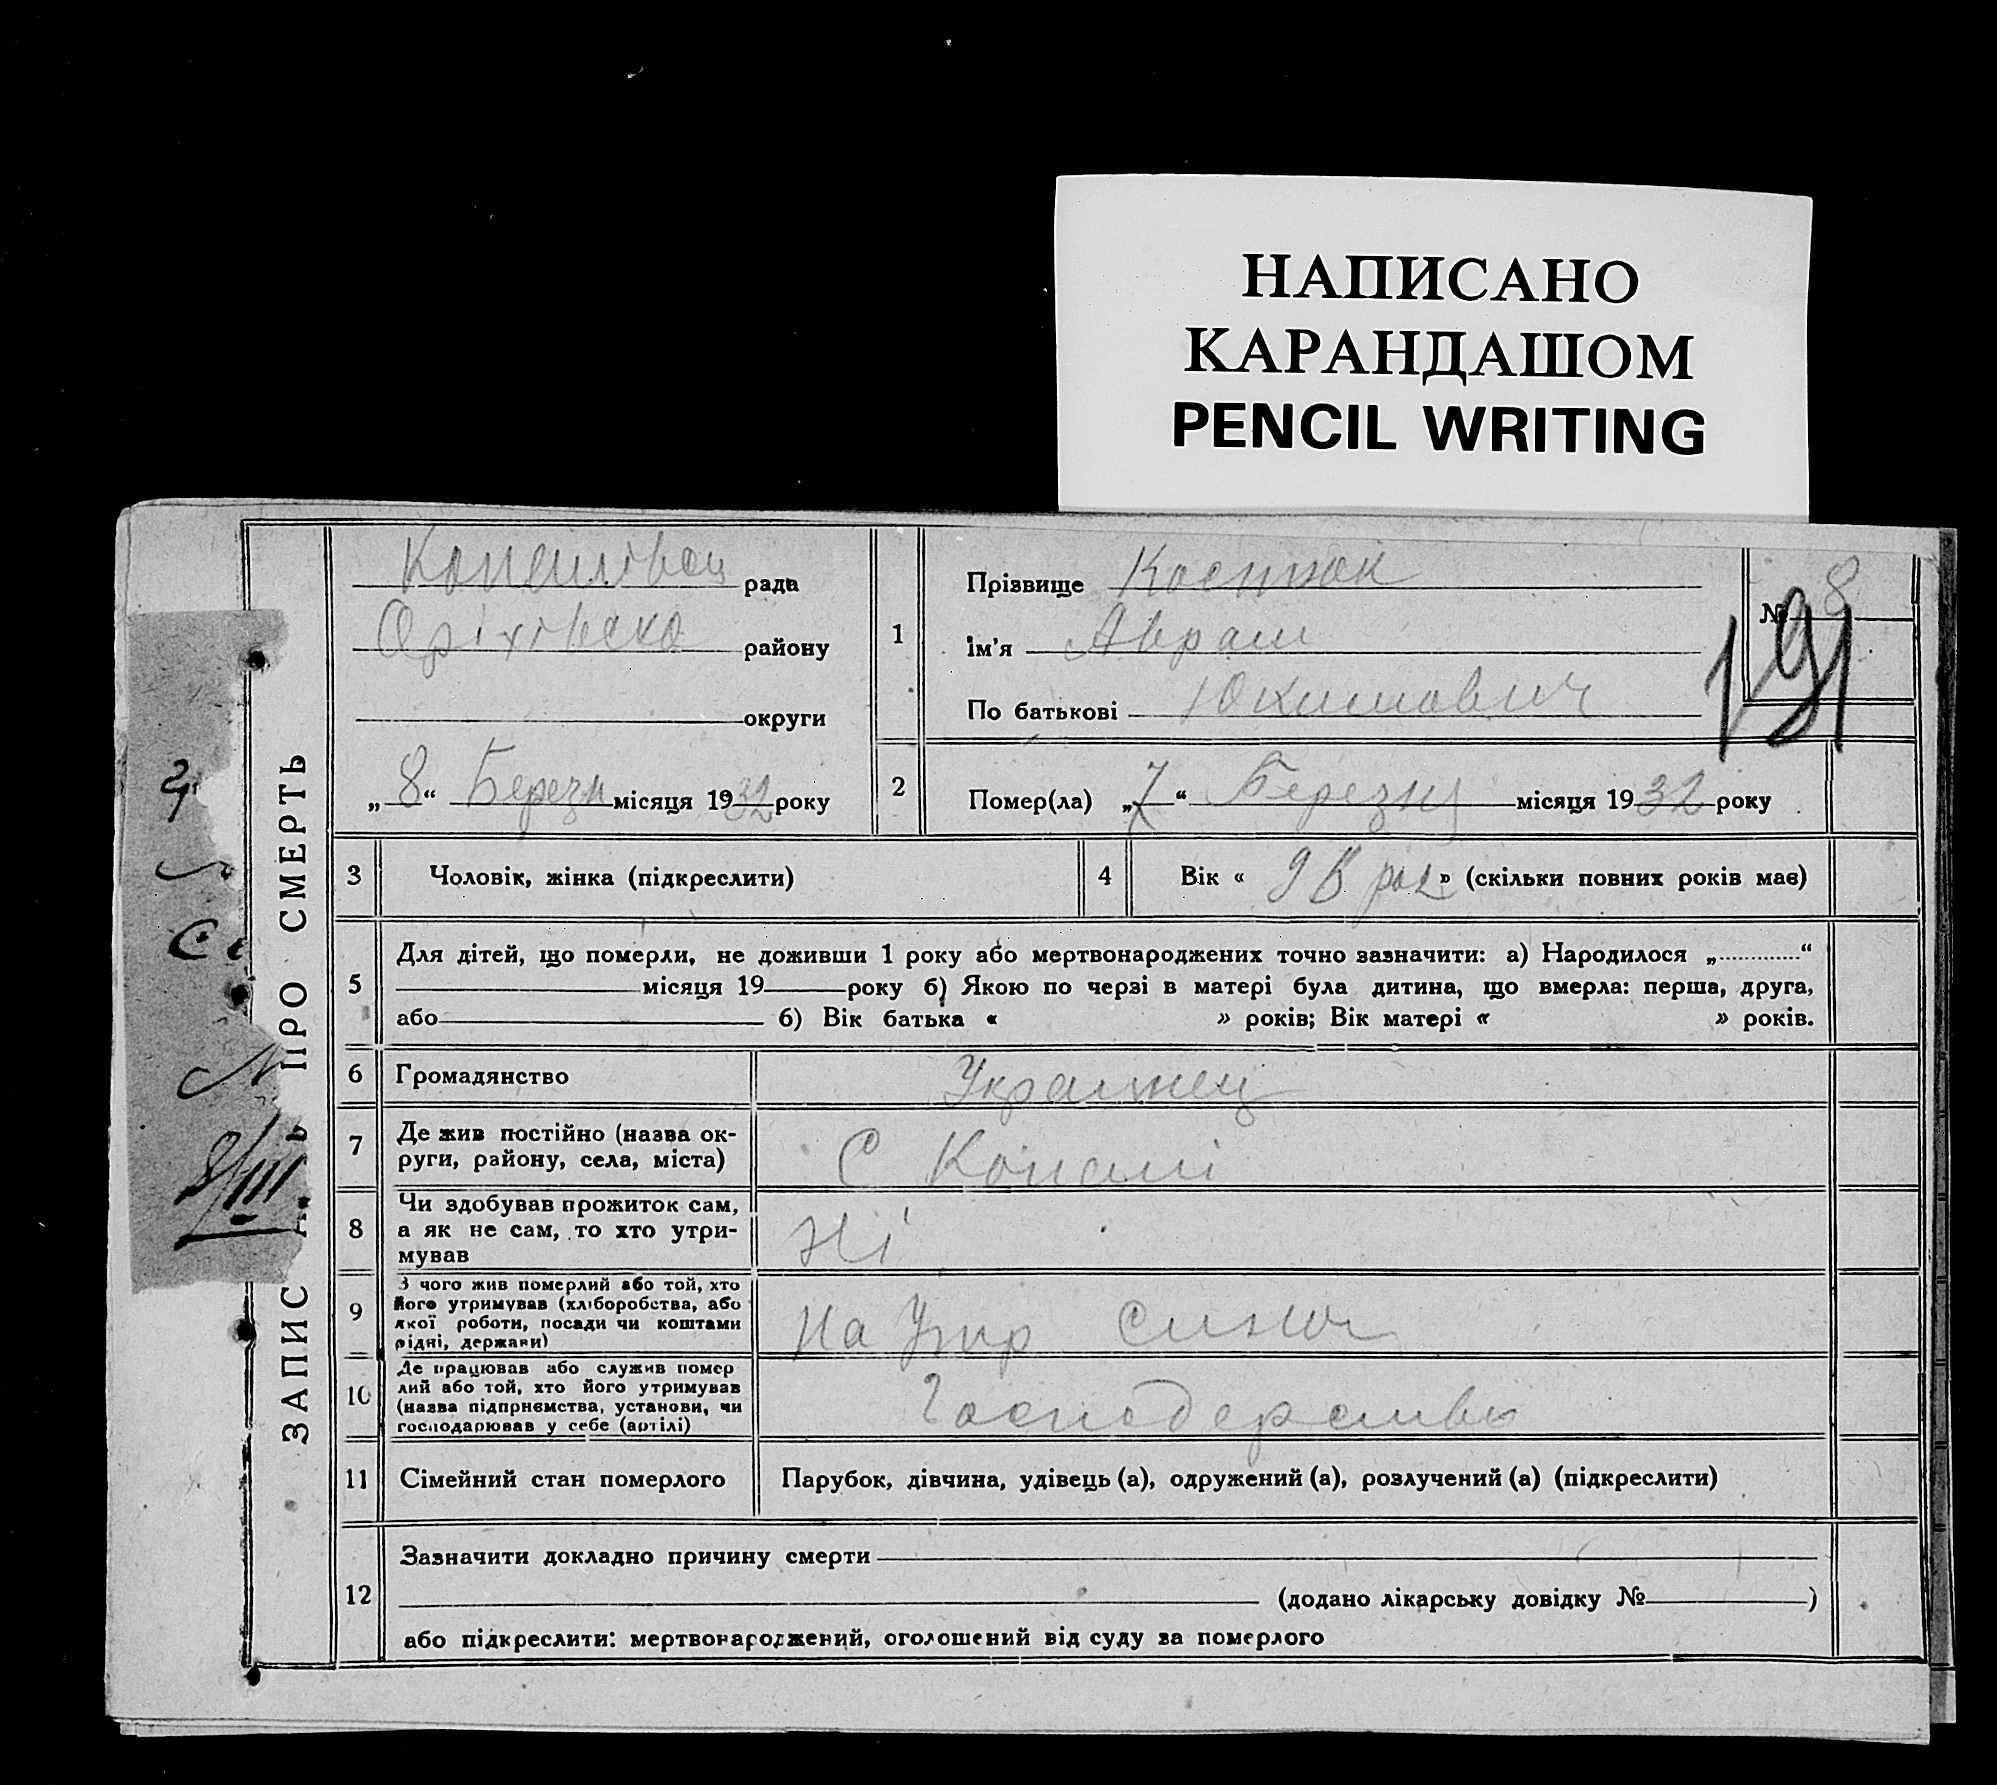 НАПИСАНО
КАРАНДАШОМ
PENCIL WRITING
ЗАПИС ПРО СМЕРТЬ
рада
Оріхівско району
округи
„8“ Березн місяця 1932 року
1
Прізвище Костюк
Ім'я Аврам
По батькові Юкимович
№ 8
191
2
Помер(ла) „7“ Березня місяця 1932 року
3
Чоловік, жінка (підкреслити)
4
Вік « » (скільки повних років має)
5
Для дітей, що померли, не доживши 1 року або мертвонароджених точно зазначити: а) Народилося „ “
місяця 19 року б) Якою по черзі в матері була дитина, що вмерла: перша, друга,
або б) Вік батька « » років; Вік матері « » років.
6
Громадянство
Украинец
7
Де жив постійно (назва ок-
руги, району, села, міста)
С Копані
8
Чи здобував прожиток сам,
а як не сам, то хто утри-
мував
Ні
9
З чого жив померлий або той, хто
його утримував (хліборобства, або
якої роботи, посади чи коштами
рідні, держави)
На Утр сина
10
Де працював або служив помер
лий або той, хто його утримував
(назва підприємства, установи, чи
господарював у себе (артілі)
11
Сімейний стан померлого
Парубок, дівчина, удівець (а), одружений (а), розлучений (а) (підкреслити)
12
Зазначити докладно причину смерти
(додано лікарську довідку № )
або підкреслити: мертвонароджений, оголошений від суду за померлого
8/III